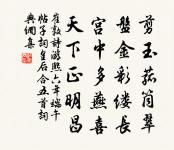 剪玉菰筒翠
盤金彩縷長
宮中多燕喜
天下正明昌
崔敦詩淳熙六年端午
帖子詞皇后合五首詞
典網集